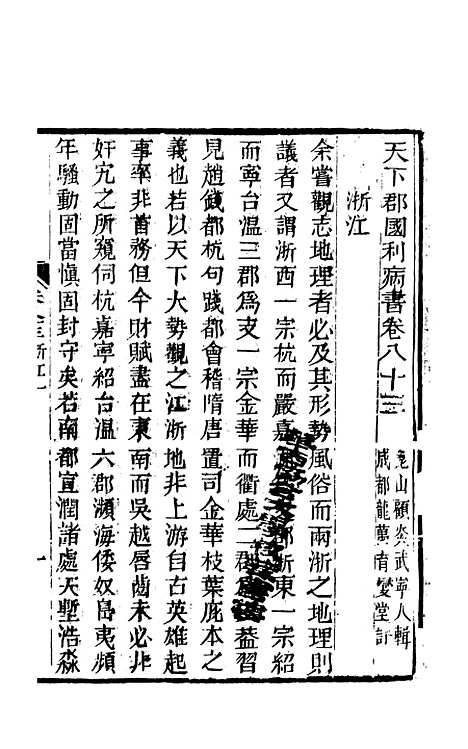 天下郡國利病書卷八十三
崑山顧炎武寧人輯
成都龍萬育燮堂訂
浙江
余嘗觀志地理者必及其形勢風俗而兩浙之地理則
議者又謂浙西一宗杭而嚴嘉郡浙東一宗紹
而寧台溫三郡爲支一宗金華而衢處二郡爲益習
見趙錢都杭句踐都會稽隋唐置司金華枝葉庇本之
義也若以天下大勢觀之江浙地非上游自古英雄起
事率非首務但今財賦盡在東南而吳越唇齒未必非
奸宄之所窺伺杭嘉寧紹台溫六郡瀕海倭奴島夷頻
年騷動固當慎固封守矣若南郡宣潤諸處天塹浩淼
卷八十三 浙江一
一